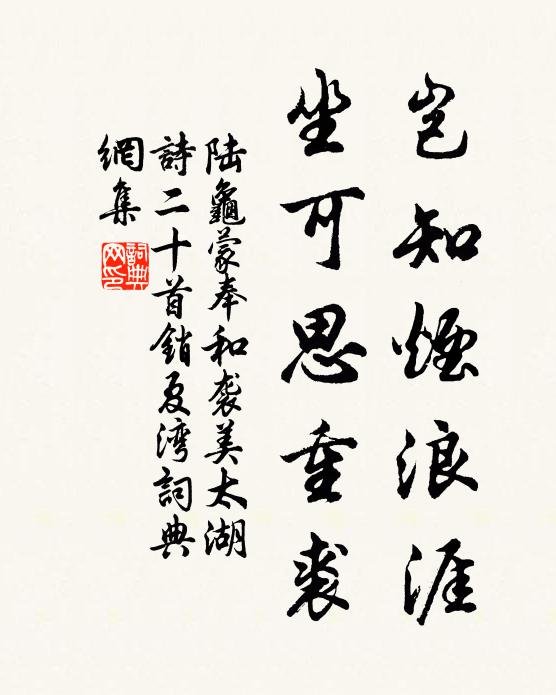 岂知煙浪涯
坐可思重裘
陆龜蒙奉和袭美太湖
詩二十首銷夏湾詞典
網集
詞典
网印